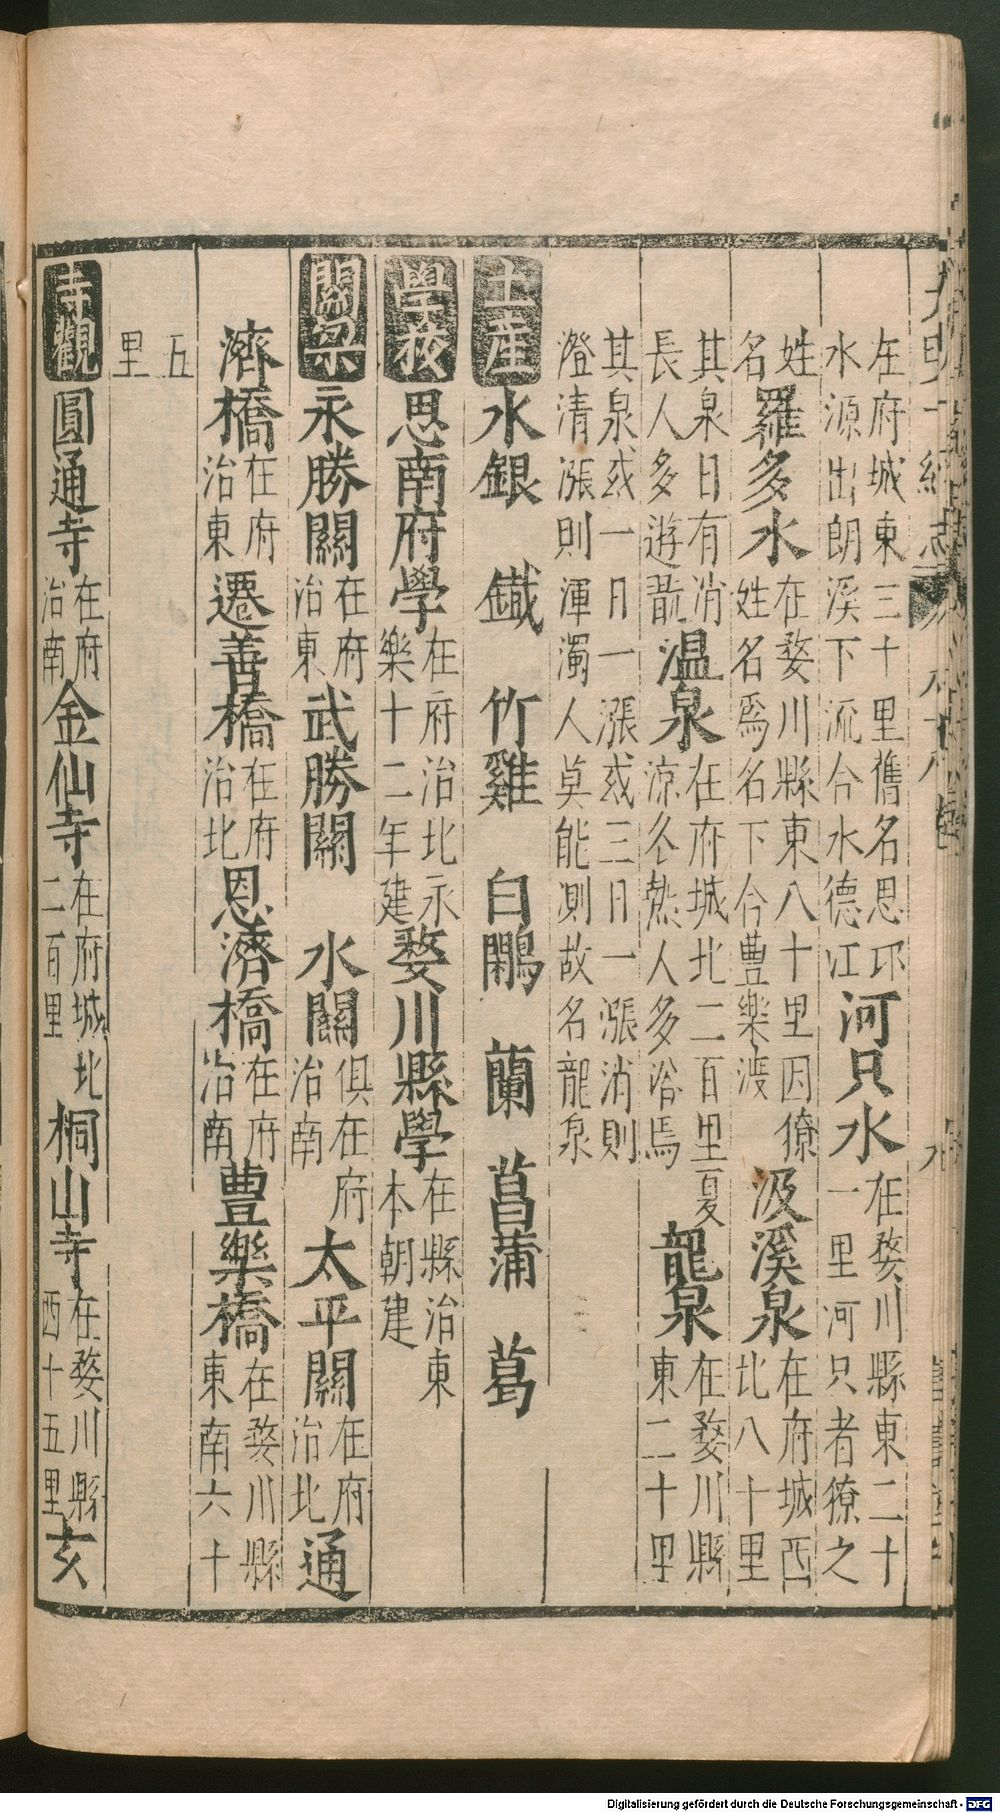 在府城東三十里舊名思邛水源出朗溪下流合水德江河只水在婺川縣東二十一里河只者獠之
姓名羅多水在婺川縣東八十里因獠姓名爲名下合豊樂渡汲溪泉在府城西北八十里
其泉日有消長人多遊翫温泉在府城北二百里夏涼冬熱人多浴焉龍泉在婺川縣東二十里
其泉或一日一漲或三日一漲消則澄清漲則渾濁人莫能測故名龍泉
土産水銀 鐵 竹雞 白鷴 蘭 菖蒲 葛
學校思南府學在府治北永樂十二年建婺川縣學在縣治東本朝建
關梁永勝關在府治東武勝關 水關俱在府治南太平關在府治北通
濟橋在府治東遷善橋在府治北恩濟橋在府治南豊樂橋在婺川縣東南六十
五里
寺觀圓通寺在府治南金仙寺在府城北二百里桐山寺在婺川縣西十五里玄
Digitalisierung gefördert durch die Deutsche Forschungsgemeinschaft - DFG